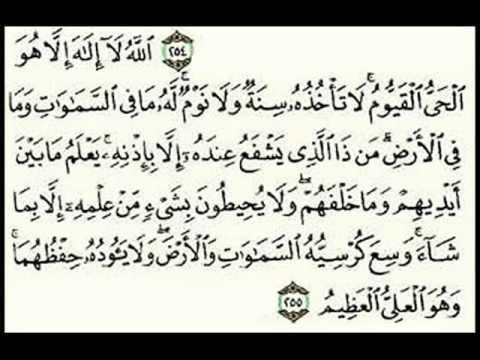 ۝٢٥٤ ٱللَّهُ لَآ إِلَٰهَ إِلَّا هُوَ
ٱلْحَىُّ ٱلْقَيُّومُ ۚ لَا تَأْخُذُهُۥ سِنَةٌ وَلَا نَوْمٌ ۚ لَّهُۥ مَا فِى ٱلسَّمَٰوَٰتِ وَمَا
فِى ٱلْأَرْضِ ۗ مَن ذَا ٱلَّذِى يَشْفَعُ عِندَهُۥٓ إِلَّا بِإِذْنِهِۦ ۚ يَعْلَمُ مَا بَيْنَ
أَيْدِيهِمْ وَمَا خَلْفَهُمْ ۖ وَلَا يُحِيطُونَ بِشَىْءٍ مِّنْ عِلْمِهِۦٓ إِلَّا بِمَا
شَآءَ ۚ وَسِعَ كُرْسِيُّهُ ٱلسَّمَٰوَٰتِ وَٱلْأَرْضَ ۖ وَلَا يَـُٔودُهُۥ حِفْظُهُمَا ۚ
وَهُوَ ٱلْعَلِىُّ ٱلْعَظِيمُ ۝٢٥٥